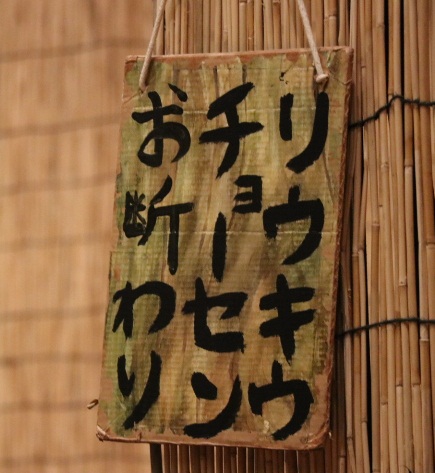 リウキウ
チョーセン
お断わり